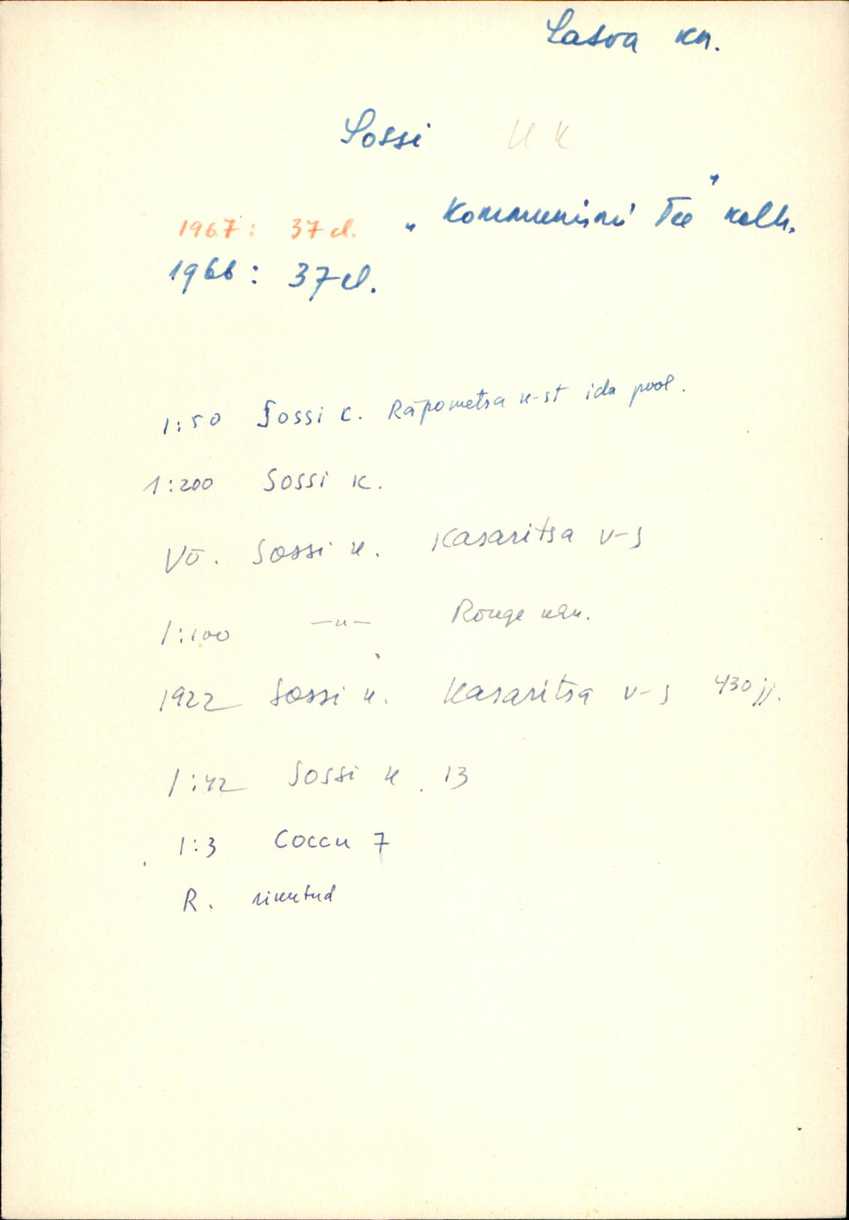 Lasva kn.
Sossi UK
1967: 37 el. „Kommunismi Tee" kolh.
1966: 37 el.
1:50 Sossi k. Räpometsa k-st ida pool.
1:200 Sossi k.
Võ. Sossi k. Kasaritsa v-s
1:100 —„— Rõuge
1922 Sossi k. Kasaritsa v-s 430 jj.
1:42 Sossi k. 13
1:3 Сосси 7
R. nimetud